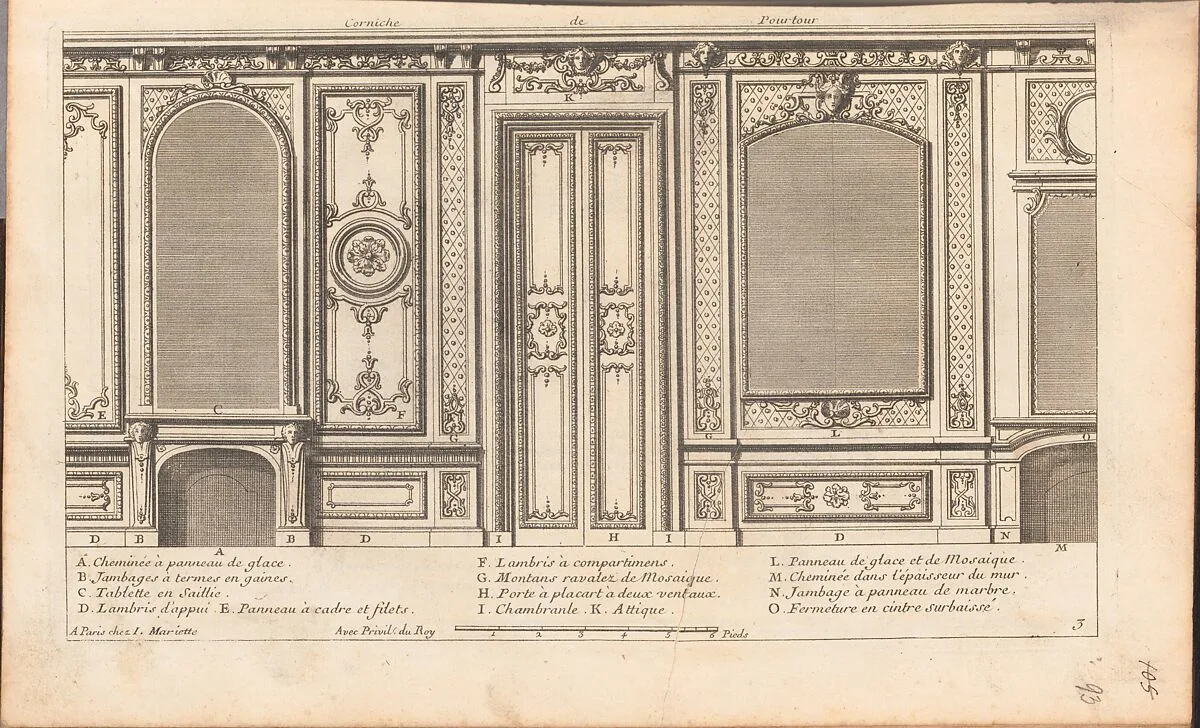 Corniche de Pourtour
K
E
C
F
G
G
L
O
D B A B D I H I D N M
A. Cheminée à panneau de glace.
B. Jambages à termes en gaines.
C. Tablette en Saillie.
D. Lambris d'appui. E. Panneau à cadre et filets.
F. Lambris à compartimens.
G. Montans ravalez de Mosaique.
H. Porte à placart à deux ventaux.
I. Chambranle. K. Attique.
L. Panneau de glace et de Mosaique.
M. Cheminée dans l'épaisseur du mur.
N. Jambage à panneau de marbre.
O. Fermeture en cintre surbaissé.
A Paris chez I. Mariette
Avec Privil. du Roy
1 2 3 4 5 6 Pieds
3
93
105